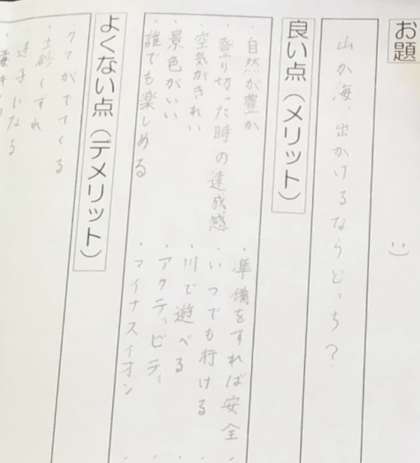 お題
:)
山か海、出かけるならどっち？
良い点（メリット）
・自然が豊か
・登り切った時の達成感
・空気がきれい
・景色がいい
・誰でも楽しめる
・準備をすれば安全
・いつでも行ける
・川で遊べる
・アクティビティ
・マイナスイオン
よくない点（デメリット）
・クマがでてくる
・土砂くずれ